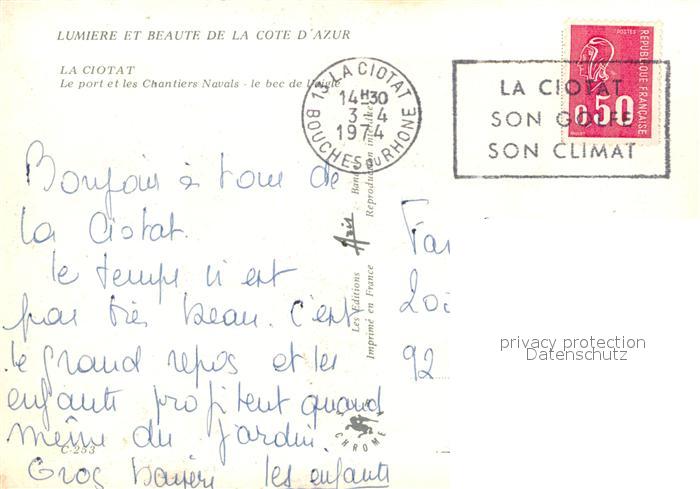 LUMIERE ET BEAUTE DE LA COTE D'AZUR
LA CIOTAT
Le port et les Chantiers Navals - le bec de l'aigle
13 LA CIOTAT
14H30
3-4
1974
BOUCHES DU RHONE
LA CIOTAT
SON GOLFE
SON CLIMAT
POSTES
REPUBLIQUE FRANÇAISE
0,50
Bonjour à tous de
la Ciotat.
le temps n'est
pas très beau. C'est
le grand repos et les
enfants profitent quand
même du jardin.
Gros baisers les enfants
Les Editions
Imprimé en France
Reproduction interdite
CHROME
C-253
Fa
20
92
privacy protection
Datenschutz